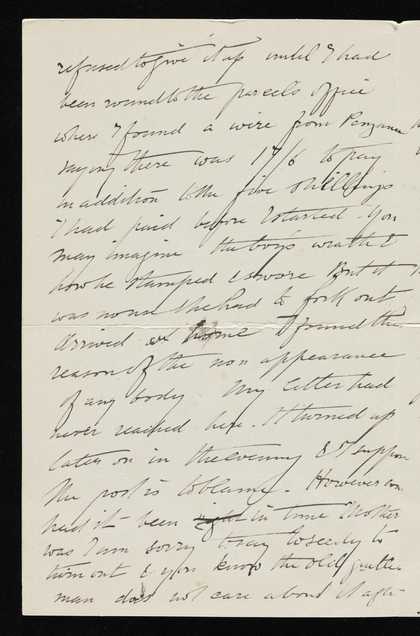 refused to give it up until I had
been round to the parcels office
where I found a wire from Penzance
saying there was 17/6 to pay
in addition to the five shillings
I had paid before I started. You
may imagine the boy's wrath &
how he stamped & swore But it
was no use he had to fork out
Arrived at home I found the
reason of the non appearance
of any body My letter had
never reached here. It turned up
later on in the evening & I suppose
the post is to blame. However
had it been in time Mother
was I am sorry to say to seedy to
turn out & you know the old
man does not care about it after